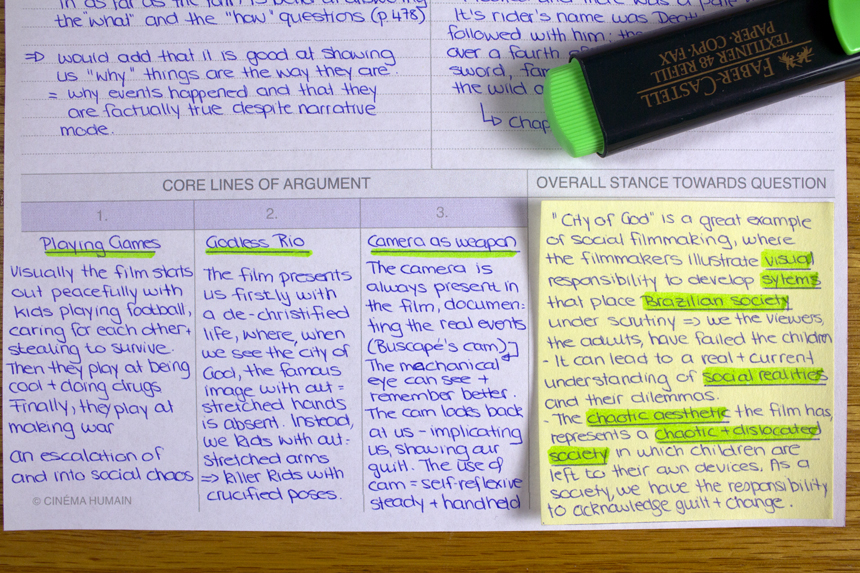 the "what" and the "how" questions (p.478)
⇒ would add that it is good at showing
us "why" things are the way they are.
= why events happened and that they
are factually true despite narrative
mode.
It's rider's name was
followed with him: the
over a fourth of
sword,
the wild
↳ Chap
FABER-CASTELL
TEXTLINER 48 REFILL
PAPER·COPY·FAX
CORE LINES OF ARGUMENT
1.
Playing Games
Visually the film starts
out peacefully with
kids playing football,
caring for each other +
stealing to survive.
Then they play at being
cool + doing drugs
Finally, they play at
making war
an escalation of
and into social chaos
© CINÉMA HUMAIN
2.
Godless Rio
The film presents
us firstly with
a de-christified
life, where, when
we see the city of
God, the famous
image with out =
stretched hands
is absent. Instead,
we kids with out-
stretched arms
⇒ killer kids with
crucified poses.
3.
Camera as weapon
The camera is
always present in
the film, documen:
ting the real events
(Buscapé's cam)
The mechanical
eye can see +
remember better.
The cam looks back
at us - implicating
us, showing our
guilt. The use of
cam = self-reflexive
steady + handheld
OVERALL STANCE TOWARDS QUESTION
"City of God" is a great example
of social filmmaking, where
the filmmakers illustrate visual
responsibility to develop sylems
that place Brazilian society
under scrutiny ⇒ we the viewers,
the adults, have failed the children
- It can lead to a real + current
understanding of social realities
and their dilemmas.
- The chaotic aesthetic the film has,
represents a chaotic + dislocated
society in which children are
left to their own devices. As a
society, we have the responsibility
to acknowledge guilt + change.